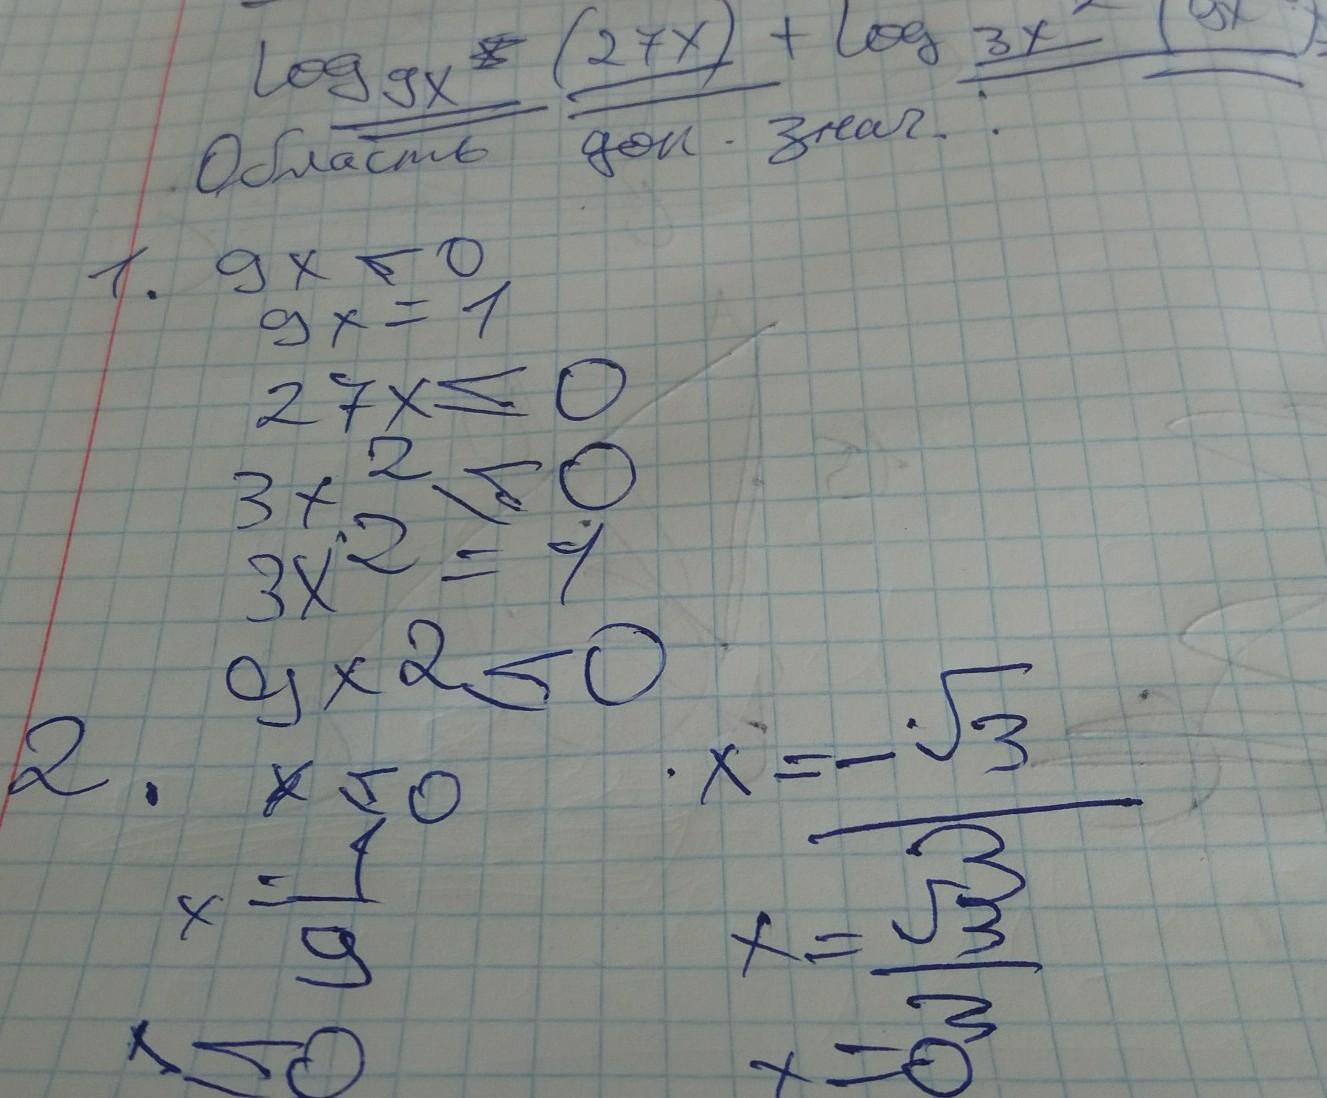 log 9x (27x) + log 3x² (9x
Область доп. знач. :
1. 9x ≤ 0
9x = 1
27x ≤ 0
3x² ≤ 0
3x² = 1
9x2 ≤ 0
2. x ≤ 0
x = 1/9
x ≤ 0
x = -√3/3
x = √3/3
x = 0